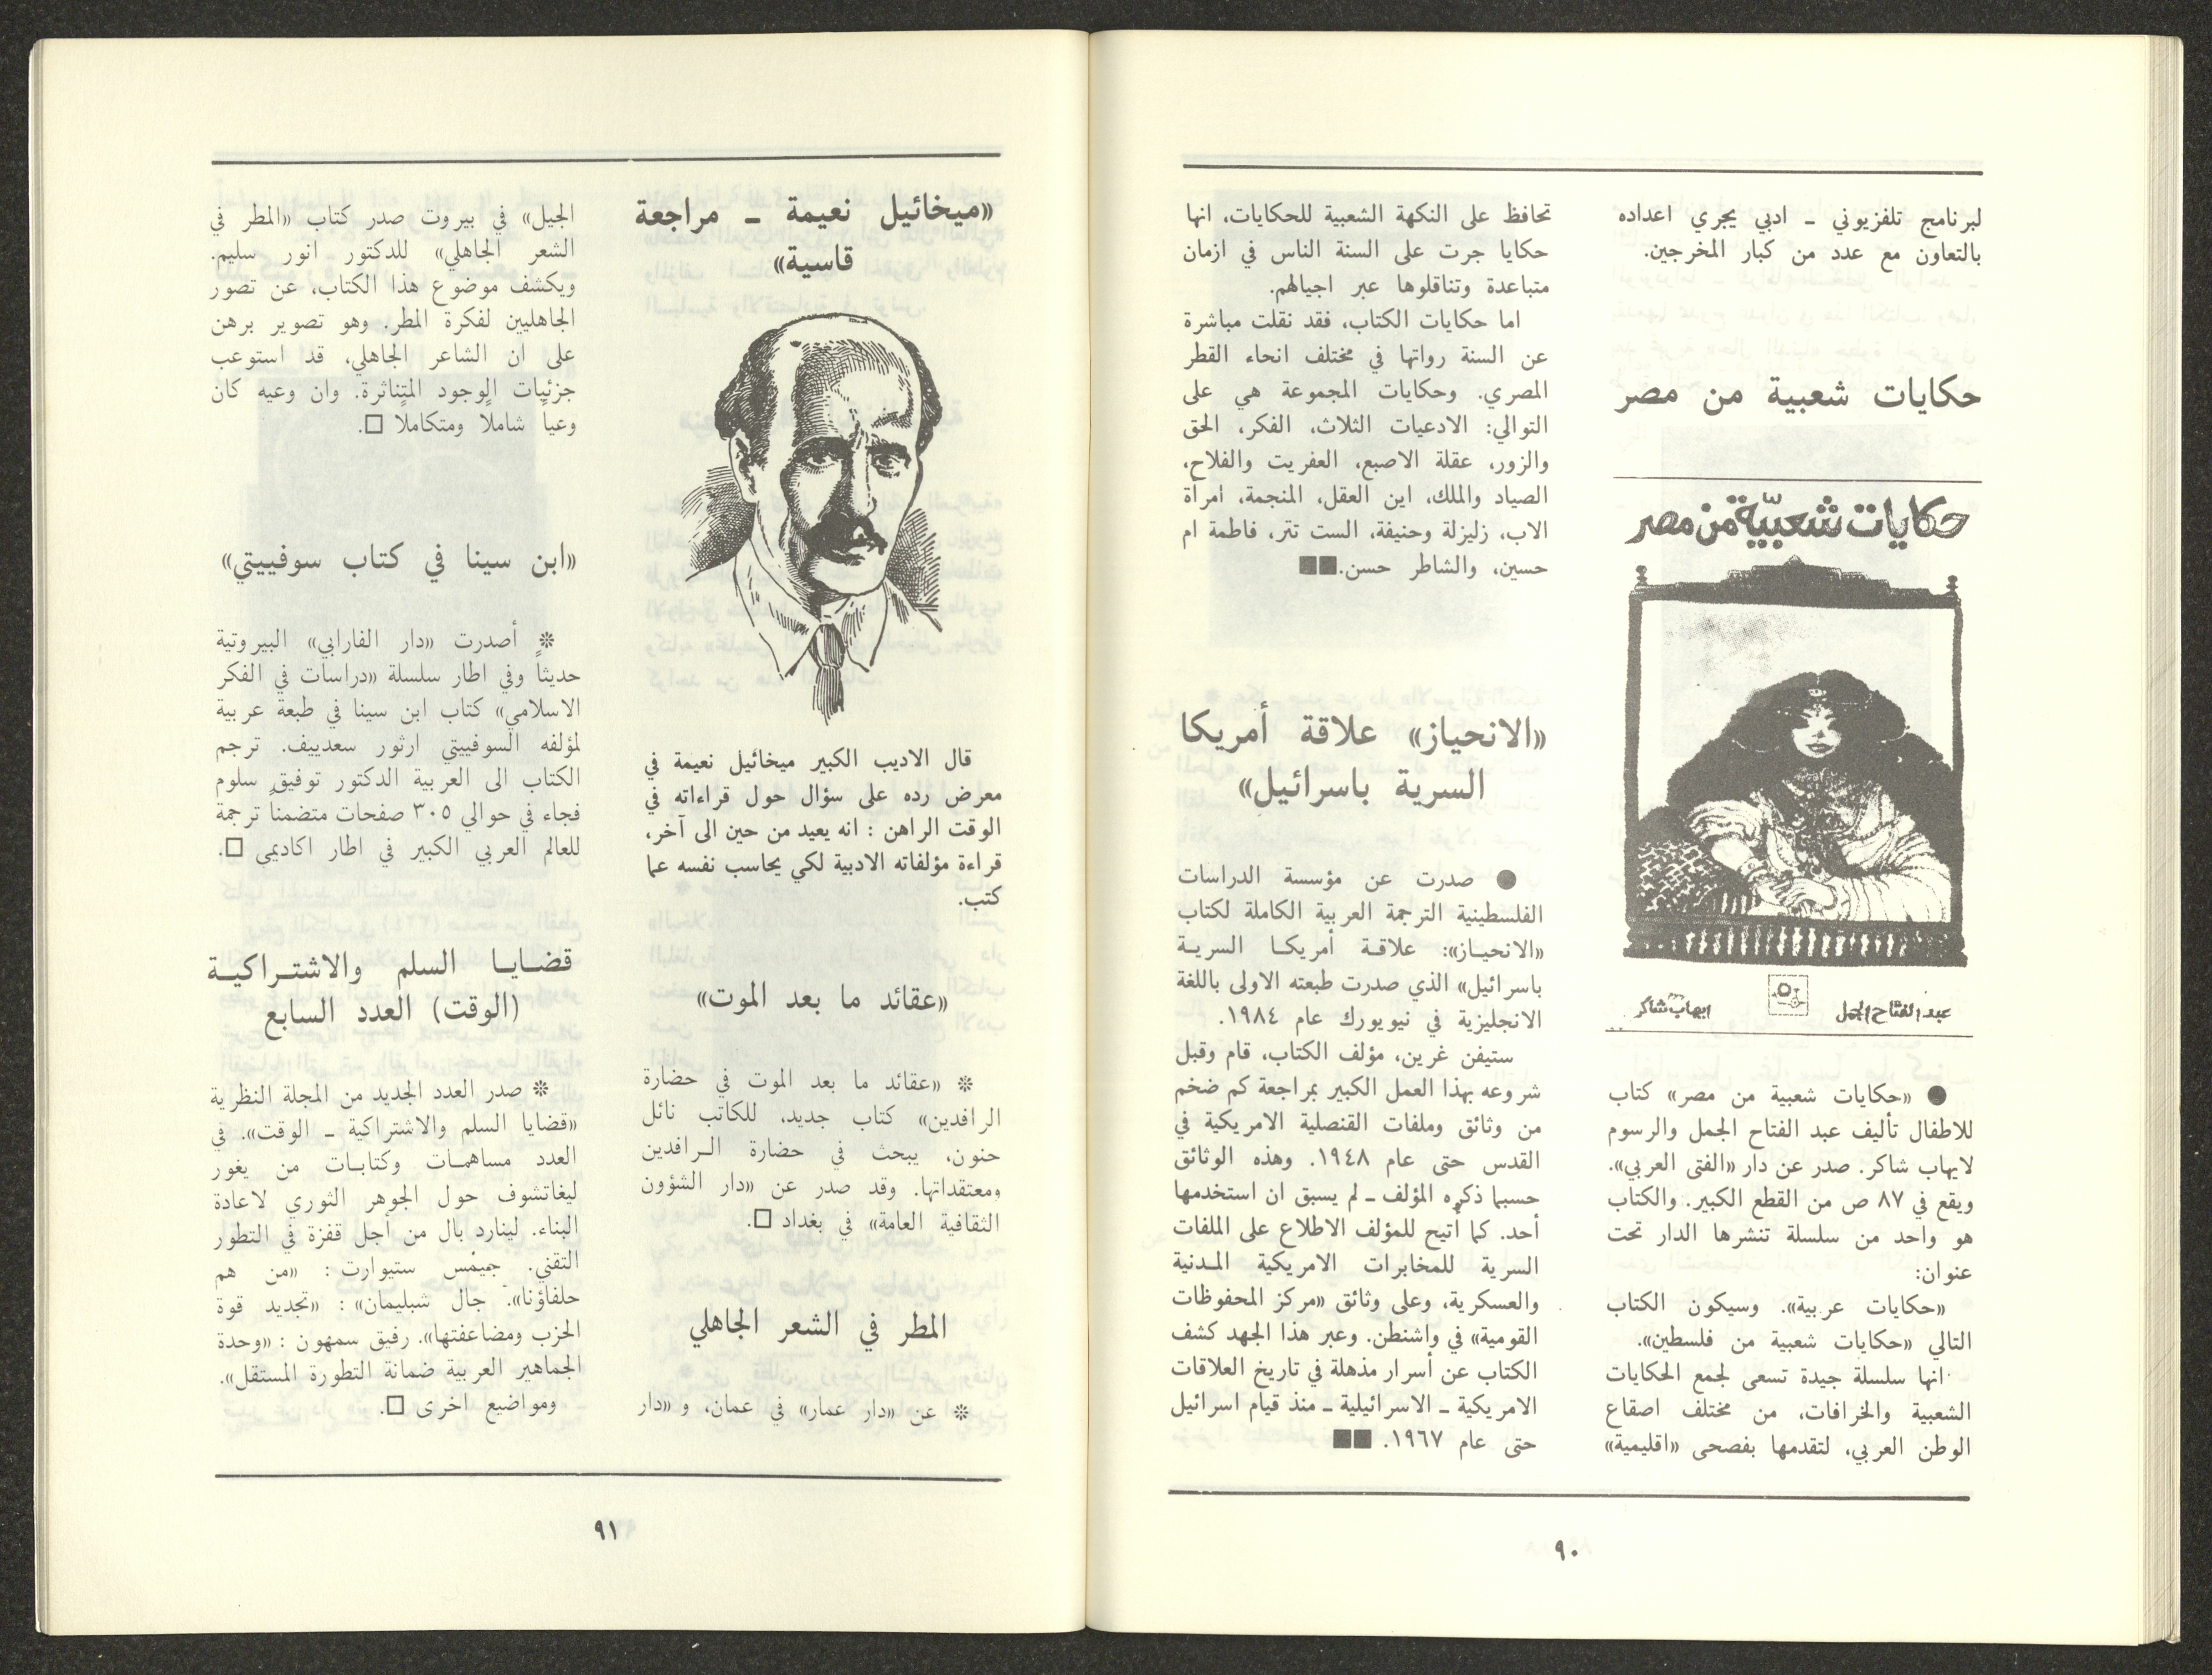 لبرنامج تلفزيوني ـ ادبي يجري اعداده
بالتعاون مع عدد من كبار المخرجين.
حكايات شعبية من مصر
حكايات شعبيّة من مصر
عبد الفتاح الجمل
ايهاب شاكر
● «حكايات شعبية من مصر» كتاب
للاطفال تأليف عبد الفتاح الجمل والرسوم
لايهاب شاكر. صدر عن دار «الفتى العربي».
ويقع في ٨٧ ص من القطع الكبير. والكتاب
هو واحد من سلسلة تنشرها الدار تحت
عنوان:
«حكايات عربية». وسيكون الكتاب
التالي «حكايات شعبية من فلسطين».
انها سلسلة جيدة تسعى لجمع الحكايات
الشعبية والخرافات، من مختلف اصقاع
الوطن العربي، لتقدمها بفصحى «اقليمية»
تحافظ على النكهة الشعبية للحكايات، انها
حكايا جرت على السنة الناس في ازمان
متباعدة وتناقلوها عبر اجيالهم.
اما حكايات الكتاب، فقد نقلت مباشرة
عن السنة رواتها في مختلف انحاء القطر
المصري. وحكايات المجموعة هي على
التوالي: الادعيات الثلاث، الفكر، الحق
والزور، عقلة الاصبع، العفريت والفلاح،
الصياد والملك، اين العقل، المنجمة، امرأة
الاب، زليزلة وحنيفة، الست تتر، فاطمة ام
حسين، والشاطر حسن.■■
«الانحياز» علاقة أمريكا
السرية باسرائيل»
● صدرت عن مؤسسة الدراسات
الفلسطينية الترجمة العربية الكاملة لكتاب
«الانحياز»: علاقة أمريكا السرية
باسرائيل» الذي صدرت طبعته الاولى باللغة
الانجليزية في نيويورك عام ١٩٨٤.
ستيفن غرين، مؤلف الكتاب، قام وقبل
شروعه بهذا العمل الكبير بمراجعة كم ضخم
من وثائق وملفات القنصلية الامريكية في
القدس حتى عام ١٩٤٨. وهذه الوثائق
حسبما ذكره المؤلف ـ لم يسبق ان استخدمها
أحد. كما أتيح للمؤلف الاطلاع على الملفات
السرية للمخابرات الامريكية المدنية
والعسكرية، وعلى وثائق «مركز المحفوظات
القومية» في واشنطن. وعبر هذا الجهد كشف
الكتاب عن أسرار مذهلة في تاريخ العلاقات
الامريكية ـ الاسرائيلية ـ منذ قيام اسرائيل
حتى عام ١٩٦٧. ■■
٩٠
«ميخائيل نعيمة ـ مراجعة
قاسية»
قال الاديب الكبير ميخائيل نعيمة في
معرض رده على سؤال حول قراءاته في
الوقت الراهن : انه يعيد من حين الى آخر،
قراءة مؤلفاته الادبية لكي يحاسب نفسه عما
كتب.
«عقائد ما بعد الموت»
* «عقائد ما بعد الموت في حضارة
الرافدين» كتاب جديد، للكاتب نائل
حنون، يبحث في حضارة الرافدين
ومعتقداتها. وقد صدر عن «دار الشؤون
الثقافية العامة» في بغداد □.
المطر في الشعر الجاهلي
* عن «دار عمار» في عمان، و «دار
الجيل» في بيروت صدر كتاب «المطر في
الشعر الجاهلي» للدكتور انور سليم.
ويكشف موضوع هذا الكتاب، عن تصور
الجاهليين لفكرة المطر. وهو تصوير برهن
على ان الشاعر الجاهلي، قد استوعب
جزئيات الوجود المتناثرة. وان وعيه كان
وعياً شاملاً ومتكاملاً □.
«ابن سينا في كتاب سوفييتي»
* أصدرت «دار الفارابي» البيروتية
حديثاً وفي اطار سلسلة «دراسات في الفكر
الاسلامي» كتاب ابن سينا في طبعة عربية
لمؤلفه السوفييتي ارثور سعدييف. ترجم
الكتاب الى العربية الدكتور توفيق سلوم
فجاء في حوالي ٣٠٥ صفحات متضمناً ترجمة
للعالم العربي الكبير في اطار اكاديمي □.
قضايا السلم والاشتراكية
(الوقت) العدد السابع
* صدر العدد الجديد من المجلة النظرية
«قضايا السلم والاشتراكية ـ الوقت». في
العدد مساهمات وكتابات من يغور
ليغاتشوف حول الجوهر الثوري لاعادة
البناء. لينارد بال من أجل قفزة في التطور
التقني. جيمس ستيوارت : «من هم
حلفاؤنا». جال شبليمان» : «تجديد قوة
الحزب ومضاعفتها». رفيق سمهون : «وحدة
الجماهير العربية ضمانة التطورة المستقل».
ومواضيع اخرى □.
٩١